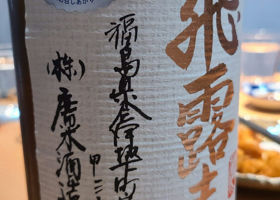 飛露喜
福島県会津坂下
甲三
(株)廣木酒造